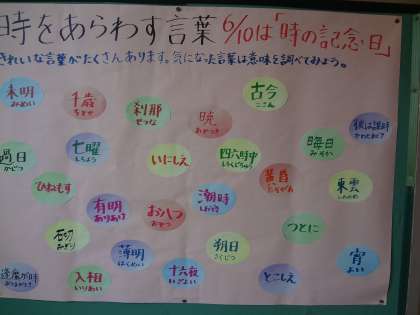 時をあらわす言葉 6/10は「時の記念日」
きれいな言葉がたくさんあります。気になった言葉は意味を調べてみよう。
未明
みめい
千歳
ちとせ
刹那
せつな
暁
あかつき
古今
ここん
過日
かじつ
七曜
しちよう
いにしえ
四六時中
しろくじちゅう
晦日
みそか
ひねもす
有明
ありあけ
お八つ
おやつ
潮時
しおどき
黄昏
たそがれ
東雲
しののめ
薄明
はくめい
朔日
さくじつ
つとに
宵
よい
逢魔が時
おうまがとき
入相
いりあい
十六夜
いざよい
とこしえ